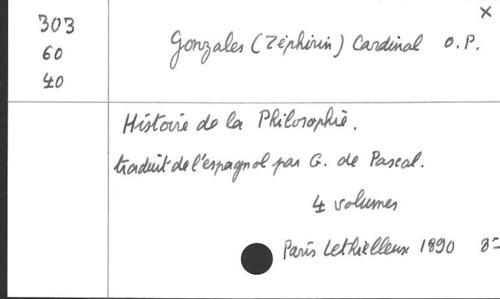 303
60
40
x
Gonzales (Zéphirin) Cardinal O.P.
Histoire de la Philosophie.
traduit de l'espagnol par G. de Pascal.
4 volumes
Paris Lethielleux 1890 8=